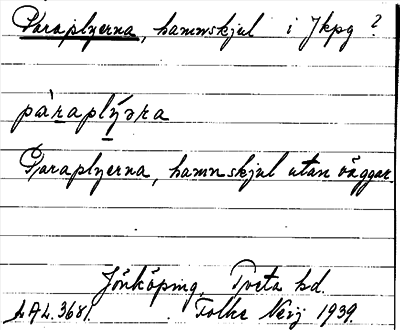 Paraplyerna, hamnskjul i Jkpg ?
pàraplýǝra
Paraplyerna, hamnskjul utan väggar.
Jönköping, Tveta hd.
LAL. 3681. Folke 1939.